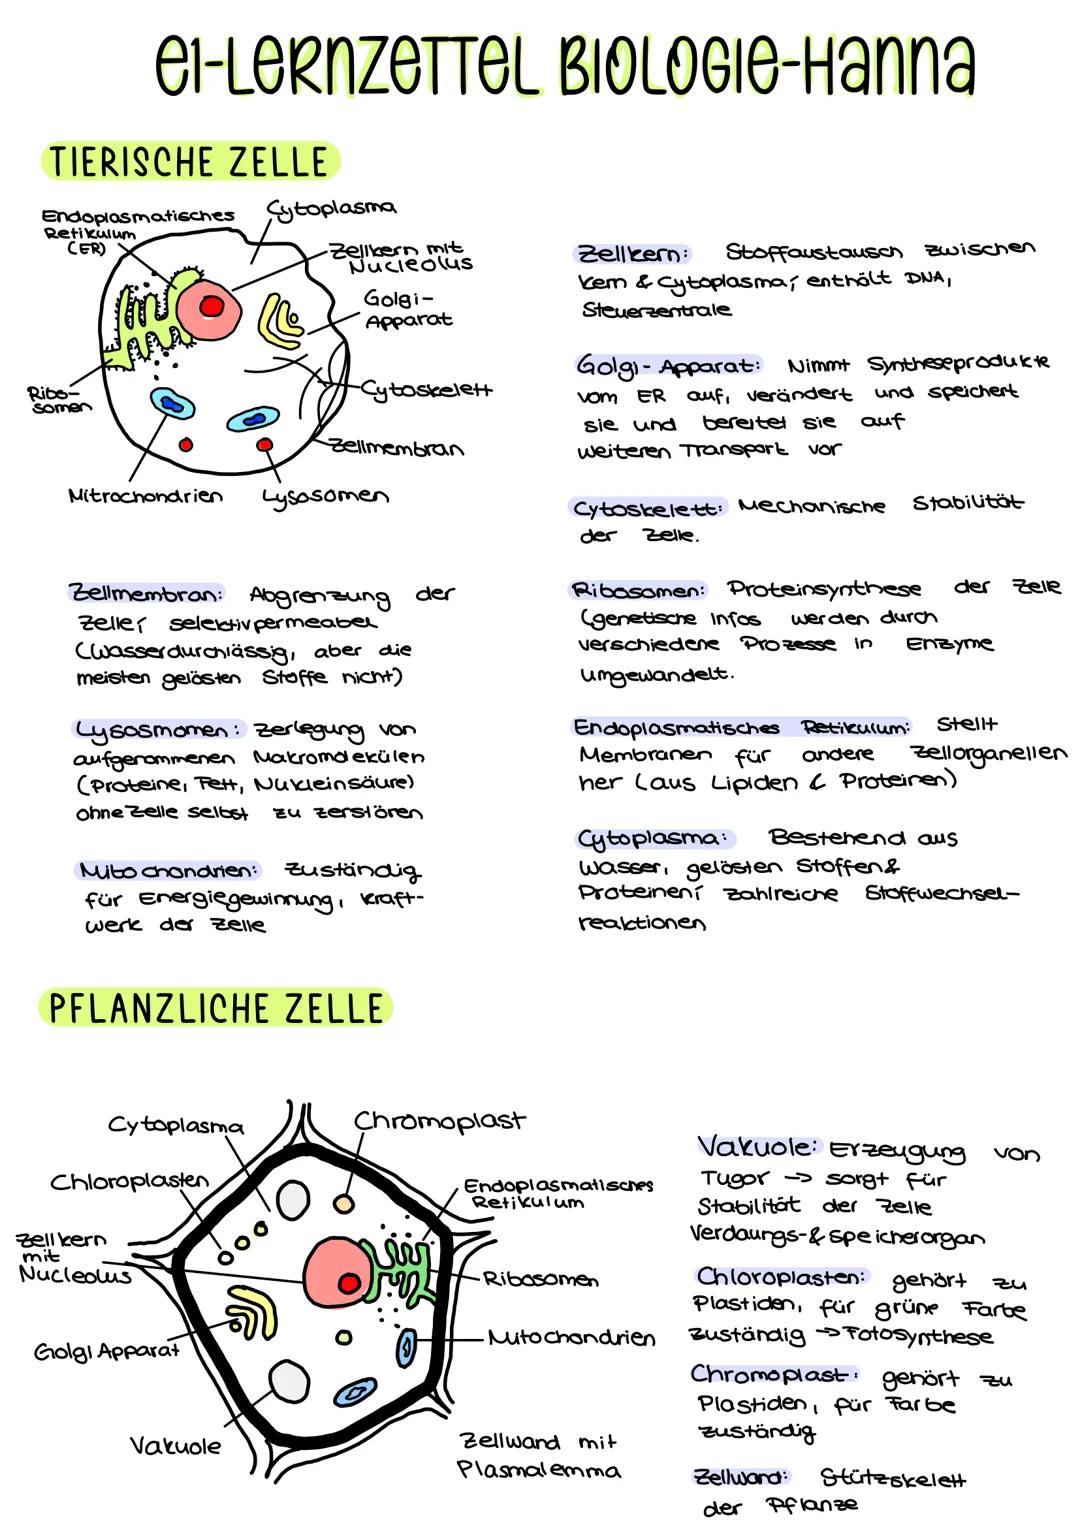 e1-Lernzettel Biologie-Hanna
TIERISCHE ZELLE
Endoplasmatisches
Retikulum
(ER)
Cytoplasma
Zellkern mit
Nucleolus
Golgi-
Apparat
Ribo-
somen
Cytoskelett
Zellmembran
Mitrochondrien
Lysosomen
Zellkern: Stoffaustausch zwischen
Kern & Cytoplasma; enthält DNA,
Steuerzentrale
Golgi-Apparat: Nimmt Syntheseprodukte
vom ER auf, verändert und speichert
sie und bereitet sie auf
weiteren Transport vor
Cytoskelett: Mechanische Stabilität
der Zelle.
Zellmembran: Abgrenzung der
Zelle; selektivpermeabel
(Wasserdurchlässig, aber die
meisten gelösten Stoffe nicht)
Lysosmomen: Zerlegung von
aufgenommenen Makromolekülen
(Proteine, Fett, Nukleinsäure)
ohne Zelle selbst zu zerstören
Mitochondrien: Zuständig
für Energiegewinnung, Kraft-
werk der Zelle
Ribosomen: Proteinsynthese der Zelle
(genetische Infos werden durch
verschiedene Prozesse in Enzyme
umgewandelt.
Endoplasmatisches Retikulum: Stellt
Membranen für andere Zellorganellen
her (aus Lipiden & Proteinen)
Cytoplasma: Bestehend aus
Wasser, gelösten Stoffen &
Proteinen; zahlreiche Stoffwechsel-
reaktionen
PFLANZLICHE ZELLE
Cytoplasma
Chromoplast
Chloroplasten
Endoplasmatisches
Retikulum
Zellkern
mit
Nucleolus
Ribosomen
Golgi Apparat
Mitochondrien
Vakuole
Zellwand mit
Plasmalemma
Vakuole: Erzeugung von
Tugor -> sorgt für
Stabilität der Zelle
Verdaungs-& speicherorgan
Chloroplasten: gehört zu
Plastiden, für grüne Farbe
zuständig -> Fotosynthese
Chromoplast: gehört zu
Plastiden, für Farbe
zuständig
Zellwand: Stützskelett
der Pflanze